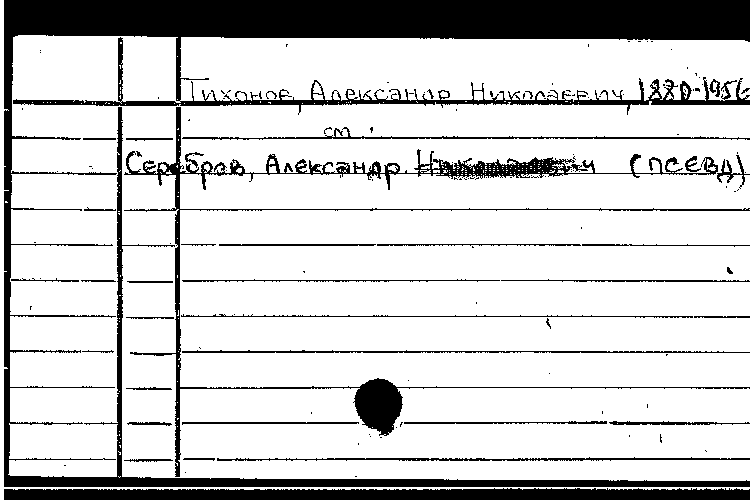 Тихонов, Александр Николаевич, 1880-1956
см.
Серебров, Александр. (псевд)